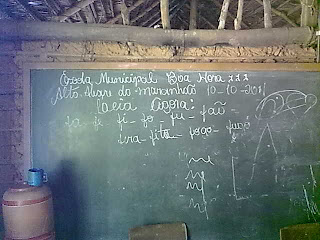 Escola Municipal Boa Hora xxx
Alto Alegre do maranhão 10-10-2011
Leia Agora:
fa_ fe_ fi_ fo_ fu_ fão_
fita_ fogo_